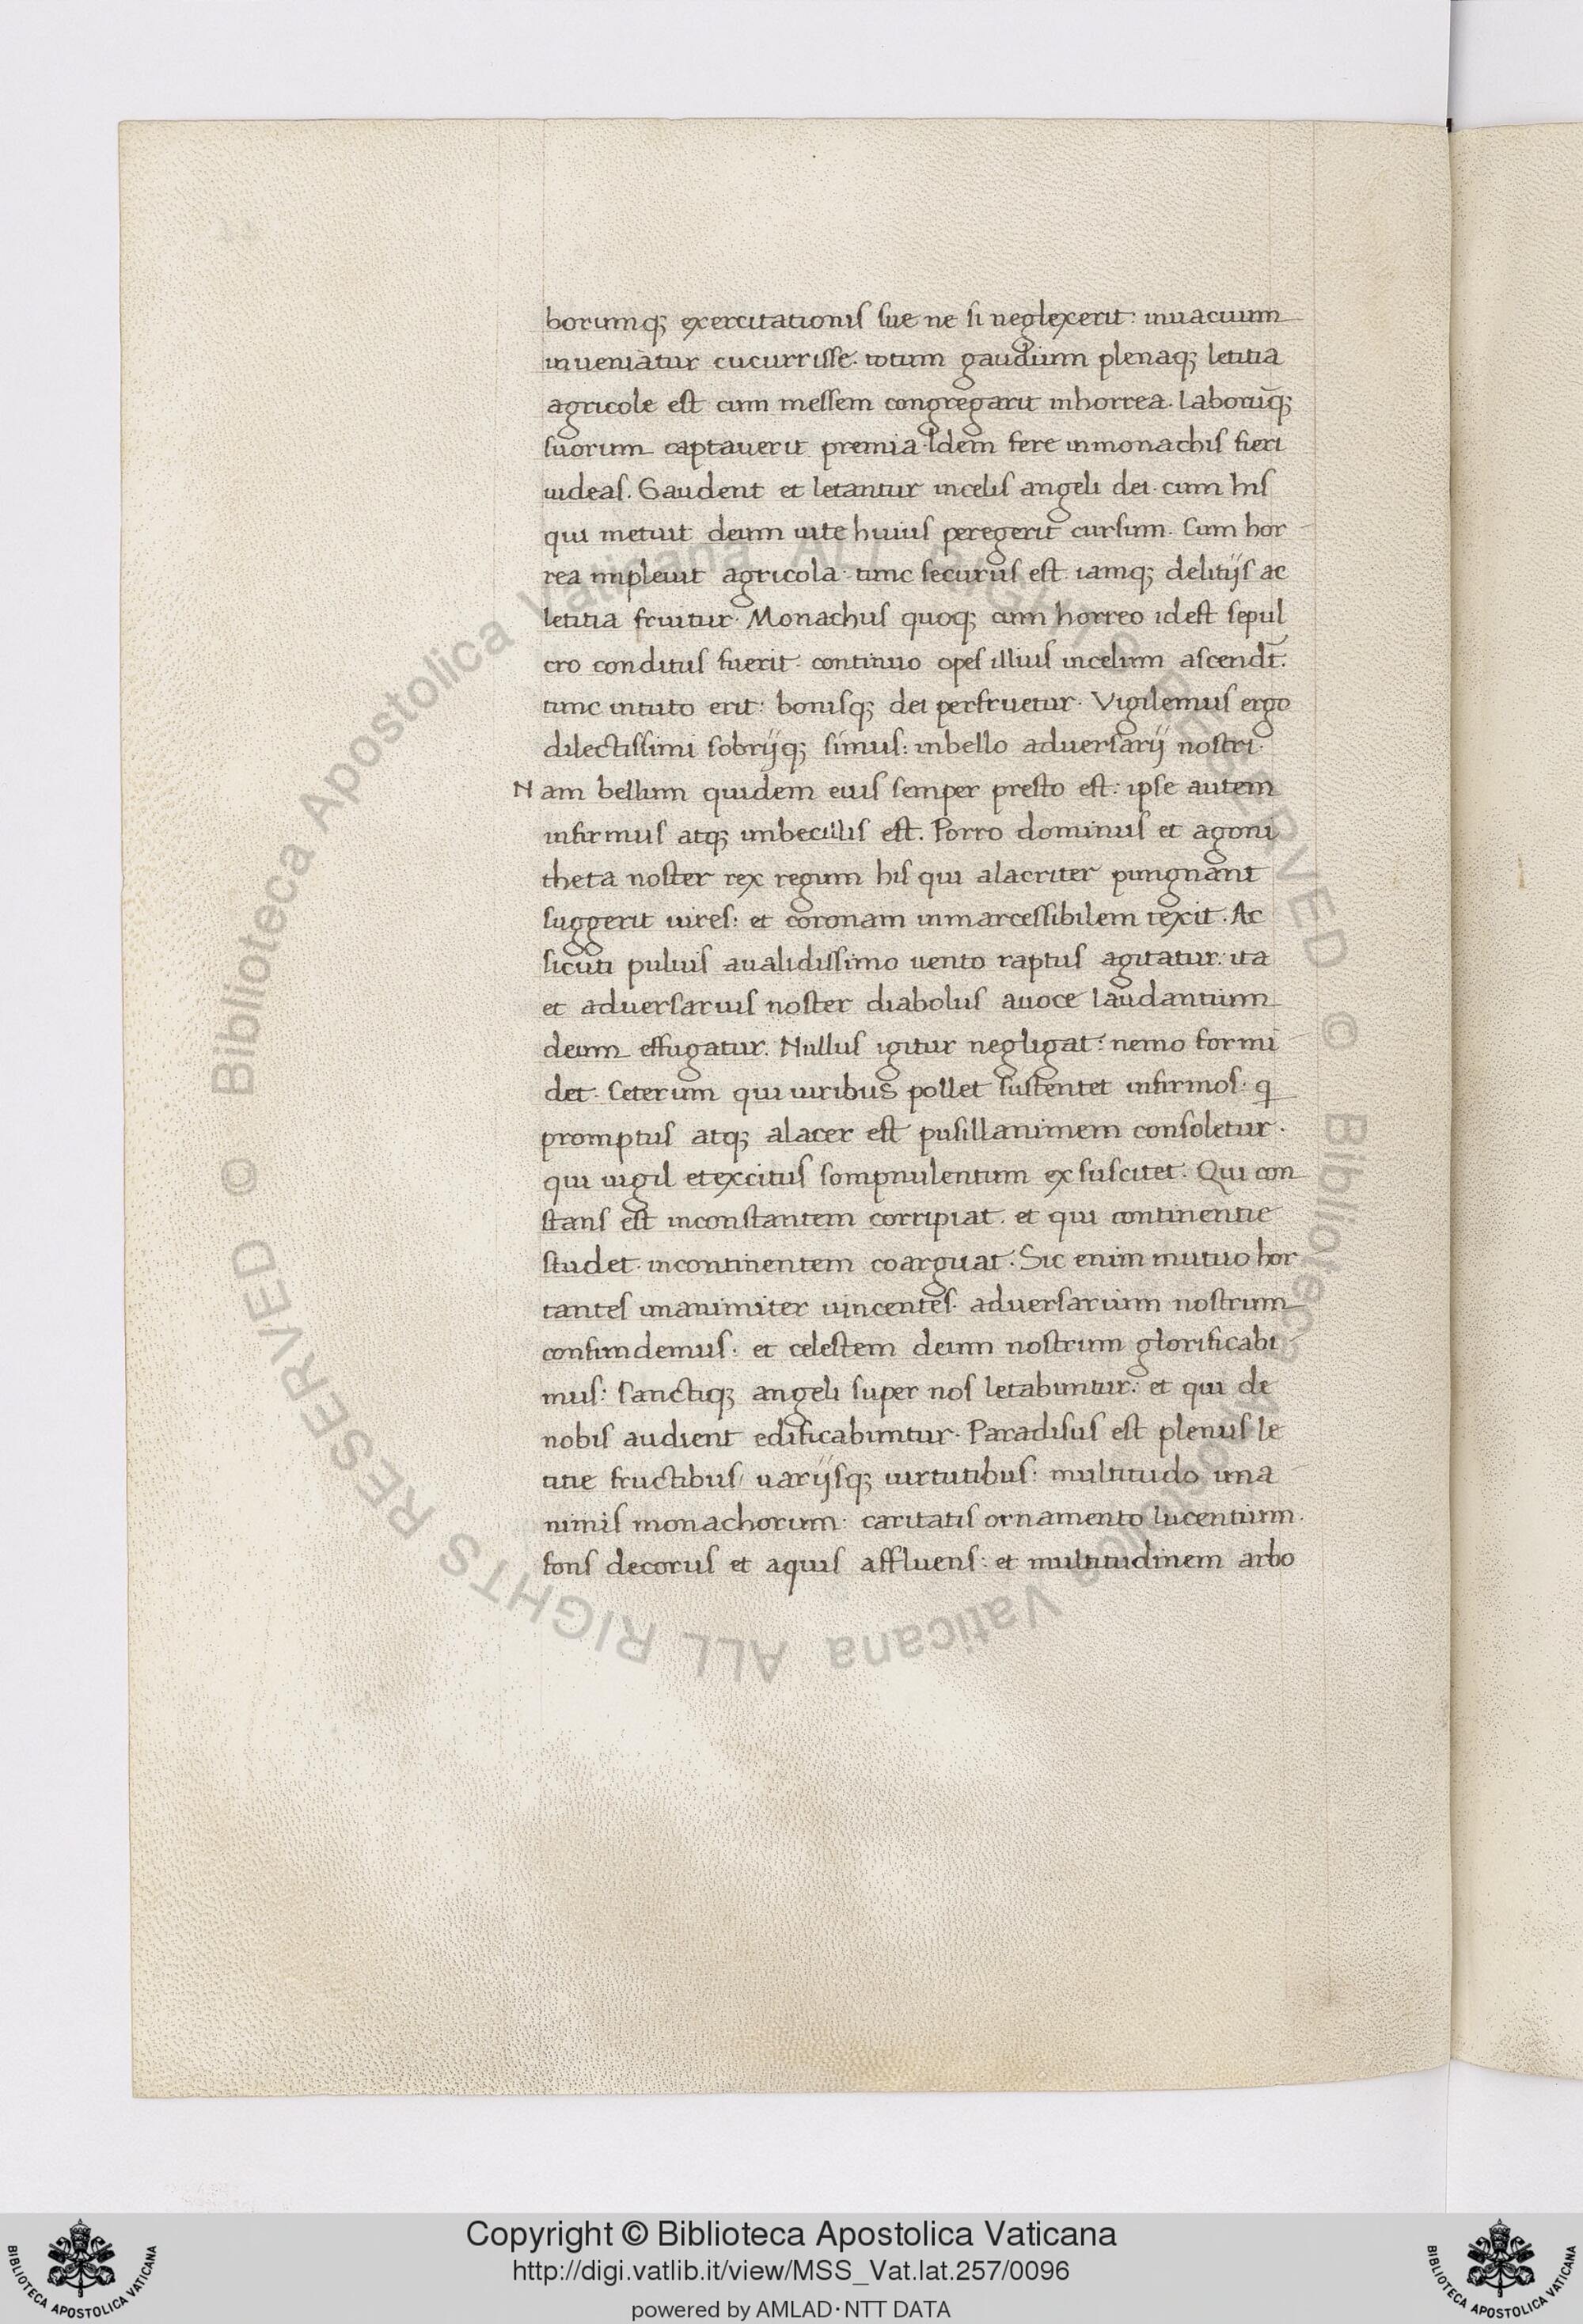 borumq; exercitationis sue ne si neglexerit: inuacuum
inueniatur cucurrisse. totum gaudium plenaq; letitia
agricole est cum messem congregarit inhorrea. Laborūq;
suorum captauerit premia. Idem fere inmonachis fieri
uideas. Gaudent et letantur incelis angeli dei. cum hiis
qui metuit deum uite huius peregerit cursum. Cum hor
rea impleuit agricola. tunc securus est. iamq; delitijs ac
letitia fruitur. Monachus quoq; cum horreo idest sepul
cro conditus fuerit. continuo opes illius incelum ascendt̄.
tunc intuto erit: bonisq; dei perfruetur. Vigilemus ergo
dilectissimi sobrijq; simus: inbello aduersarij nostri.
Nam bellum quidem eius semper presto est: ipse autem
infirmus atq; imbecillis est. Porro dominus et agoni
theta noster rex regum his qui alacriter pungnant
suggerit uires: et coronam inmarcessibilem texit. Ac
sicuti puluis aualidissimo uento raptus agitatur: ita
et aduersarius noster diabolus auoce laudantium
deum effugatur. Nullus igitur negligat: nemo formi
det. Ceterum qui uiribus pollet sustentet infirmos: q
promptus atq; alacer est pusillanimem consoletur.
qui uigil et excitus sompnulentum exsuscitet. Qui con
stans est inconstantem corripiat. et qui continentie
studet. incontinentem coarguat. Sic enim mutuo hor
tantes unanimiter uincentes. aduersarium nostrum
confundemus. et celestem deum nostrum glorificabi
mus: sanctiq; angeli super nos letabuntur: et qui de
nobis audient edificabuntur. Paradisus est plenus le
titie fructibus uarijsq; uirtutibus: multitudo una
nimis monachorum: caritatis ornamento lucentium.
fons decorus et aquis affluens: et multitudinem arbo
Copyright © Biblioteca Apostolica Vaticana
http://digi.vatlib.it/view/MSS_Vat.lat.257/0096
powered by AMLAD·NTT DATA
BIBLIOTECA APOSTOLICA VATICANA
BIBLIOTECA APOSTOLICA VATICANA
© Biblioteca Apostolica Vaticana ALL RIGHTS RESERVED
© Biblioteca Apostolica Vaticana ALL RIGHTS RESERVED